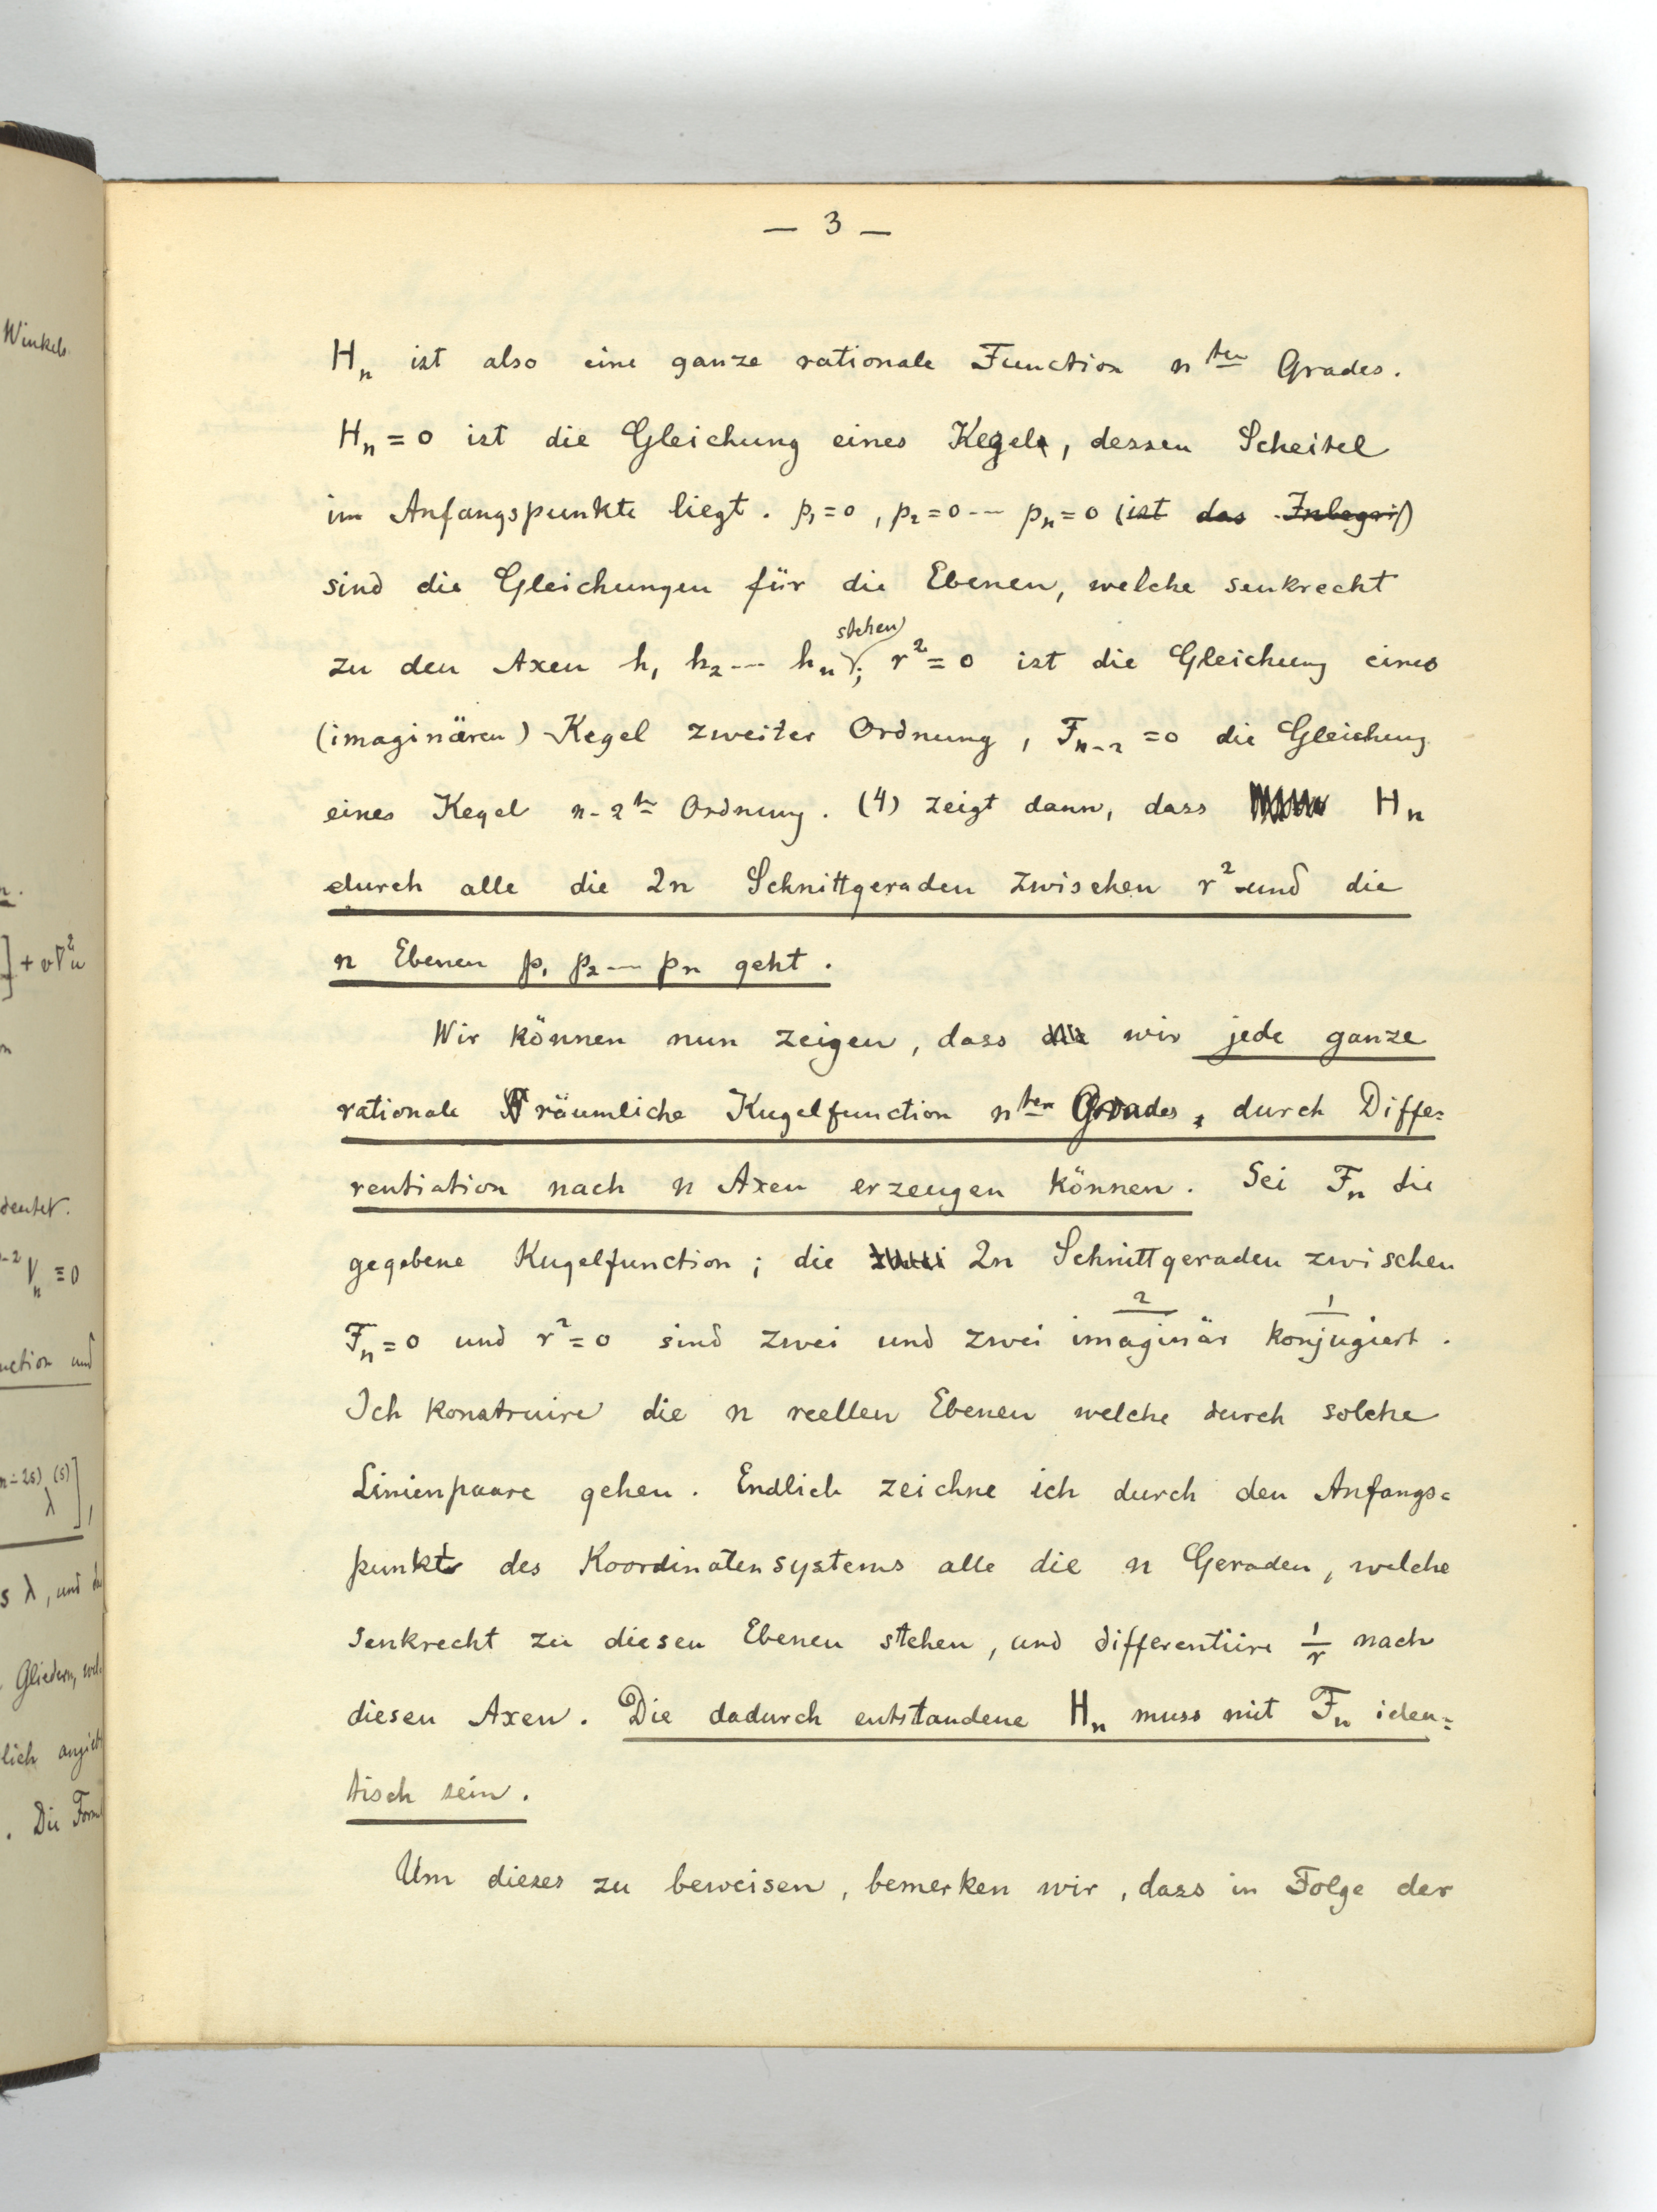 — 3 —
Hₙ ist also eine ganze rationale Function n ten Grades.
Hₙ = 0 ist die Gleichung eines Kegels, dessen Scheitel
im Anfangspunkte liegt. p₁ = 0, p₂ = 0 --- pₙ = 0 (ist das Inbegrif)
sind die Gleichungen für die Ebenen, welche senkrecht
stehen
zu den Axen h₁ h₂ --- hₙ ; r² = 0 ist die Gleichung eines
(imaginären) Kegel zweiter Ordnung, Fₙ₋₂ = 0 die Gleichung
eines Kegel n-2 ter Ordnung. (4) zeigt dann, dass Hₙ
durch alle die 2n Schnittgeraden zwischen r² und die
n Ebenen p₁ p₂ --- pₙ geht.
Wir können nun zeigen, dass wir jede ganze
rationale räumliche Kugelfunction n ten Grades, durch Diffe=
rentiation nach n Axen erzeugen können. Sei Fₙ die
gegebene Kugelfunction; die zwei 2n Schnittgeraden zwischen
2 1
Fₙ = 0 und r² = 0 sind zwei und zwei imaginär konjugiert.
Ich konstruire die n reellen Ebenen welche durch solche
Linienpaare gehen. Endlich zeichne ich durch den Anfangs=
punkt des Koordinatensystems alle die n Geraden, welche
senkrecht zu diesen Ebenen stehen, und differentiire 1/r nach
diesen Axen. Die dadurch entstandene Hₙ muss mit Fₙ iden=
tisch sein.
Um dieses zu beweisen, bemerken wir, dass in Folge der
Winkels
n.
] + v∇²u
deutet.
n-2 Vₙ ≡ 0
nction und
n-2s) (s)
λ ],
s λ, und
Gliedern,
lich
. Die